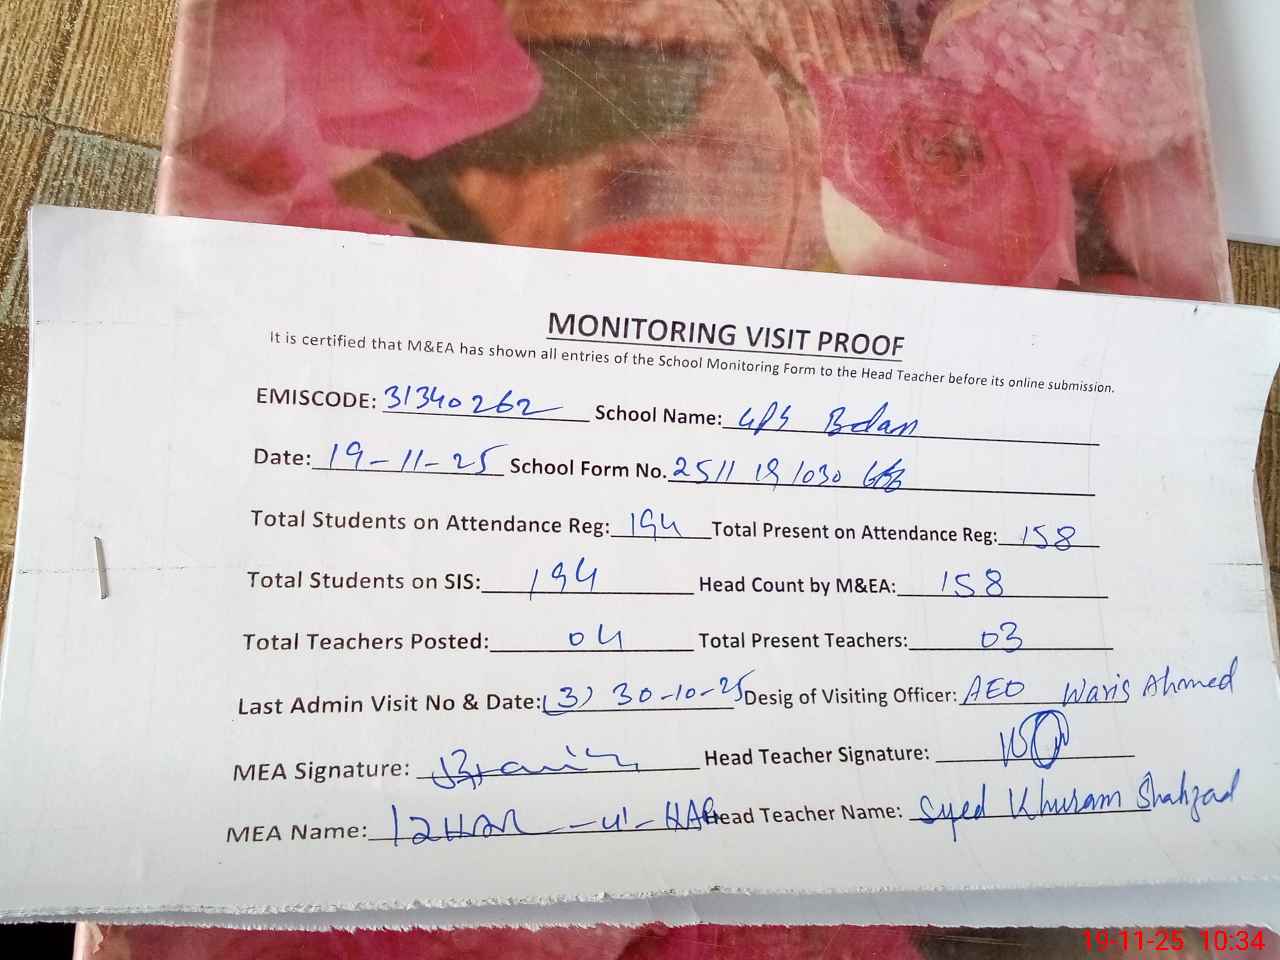 MONITORING VISIT PROOF
It is certified that M&EA has shown all entries of the School Monitoring Form to the Head Teacher before its online submission.
EMISCODE: 31340262 School Name: GPS
Date: 19-11-25 School Form No. 2511 19 1030
Total Students on Attendance Reg: 194 Total Present on Attendance Reg: 158
Total Students on SIS: 194 Head Count by M&EA: 158
Total Teachers Posted: 04 Total Present Teachers: 03
Last Admin Visit No & Date: (3) 30-10-25 Desig of Visiting Officer: AEO Waris Ahmed
MEA Signature: Head Teacher Signature:
MEA Name: IZHAR-ul-HAQ Head Teacher Name: Syed Khuram Shahzad
19-11-25 10:34